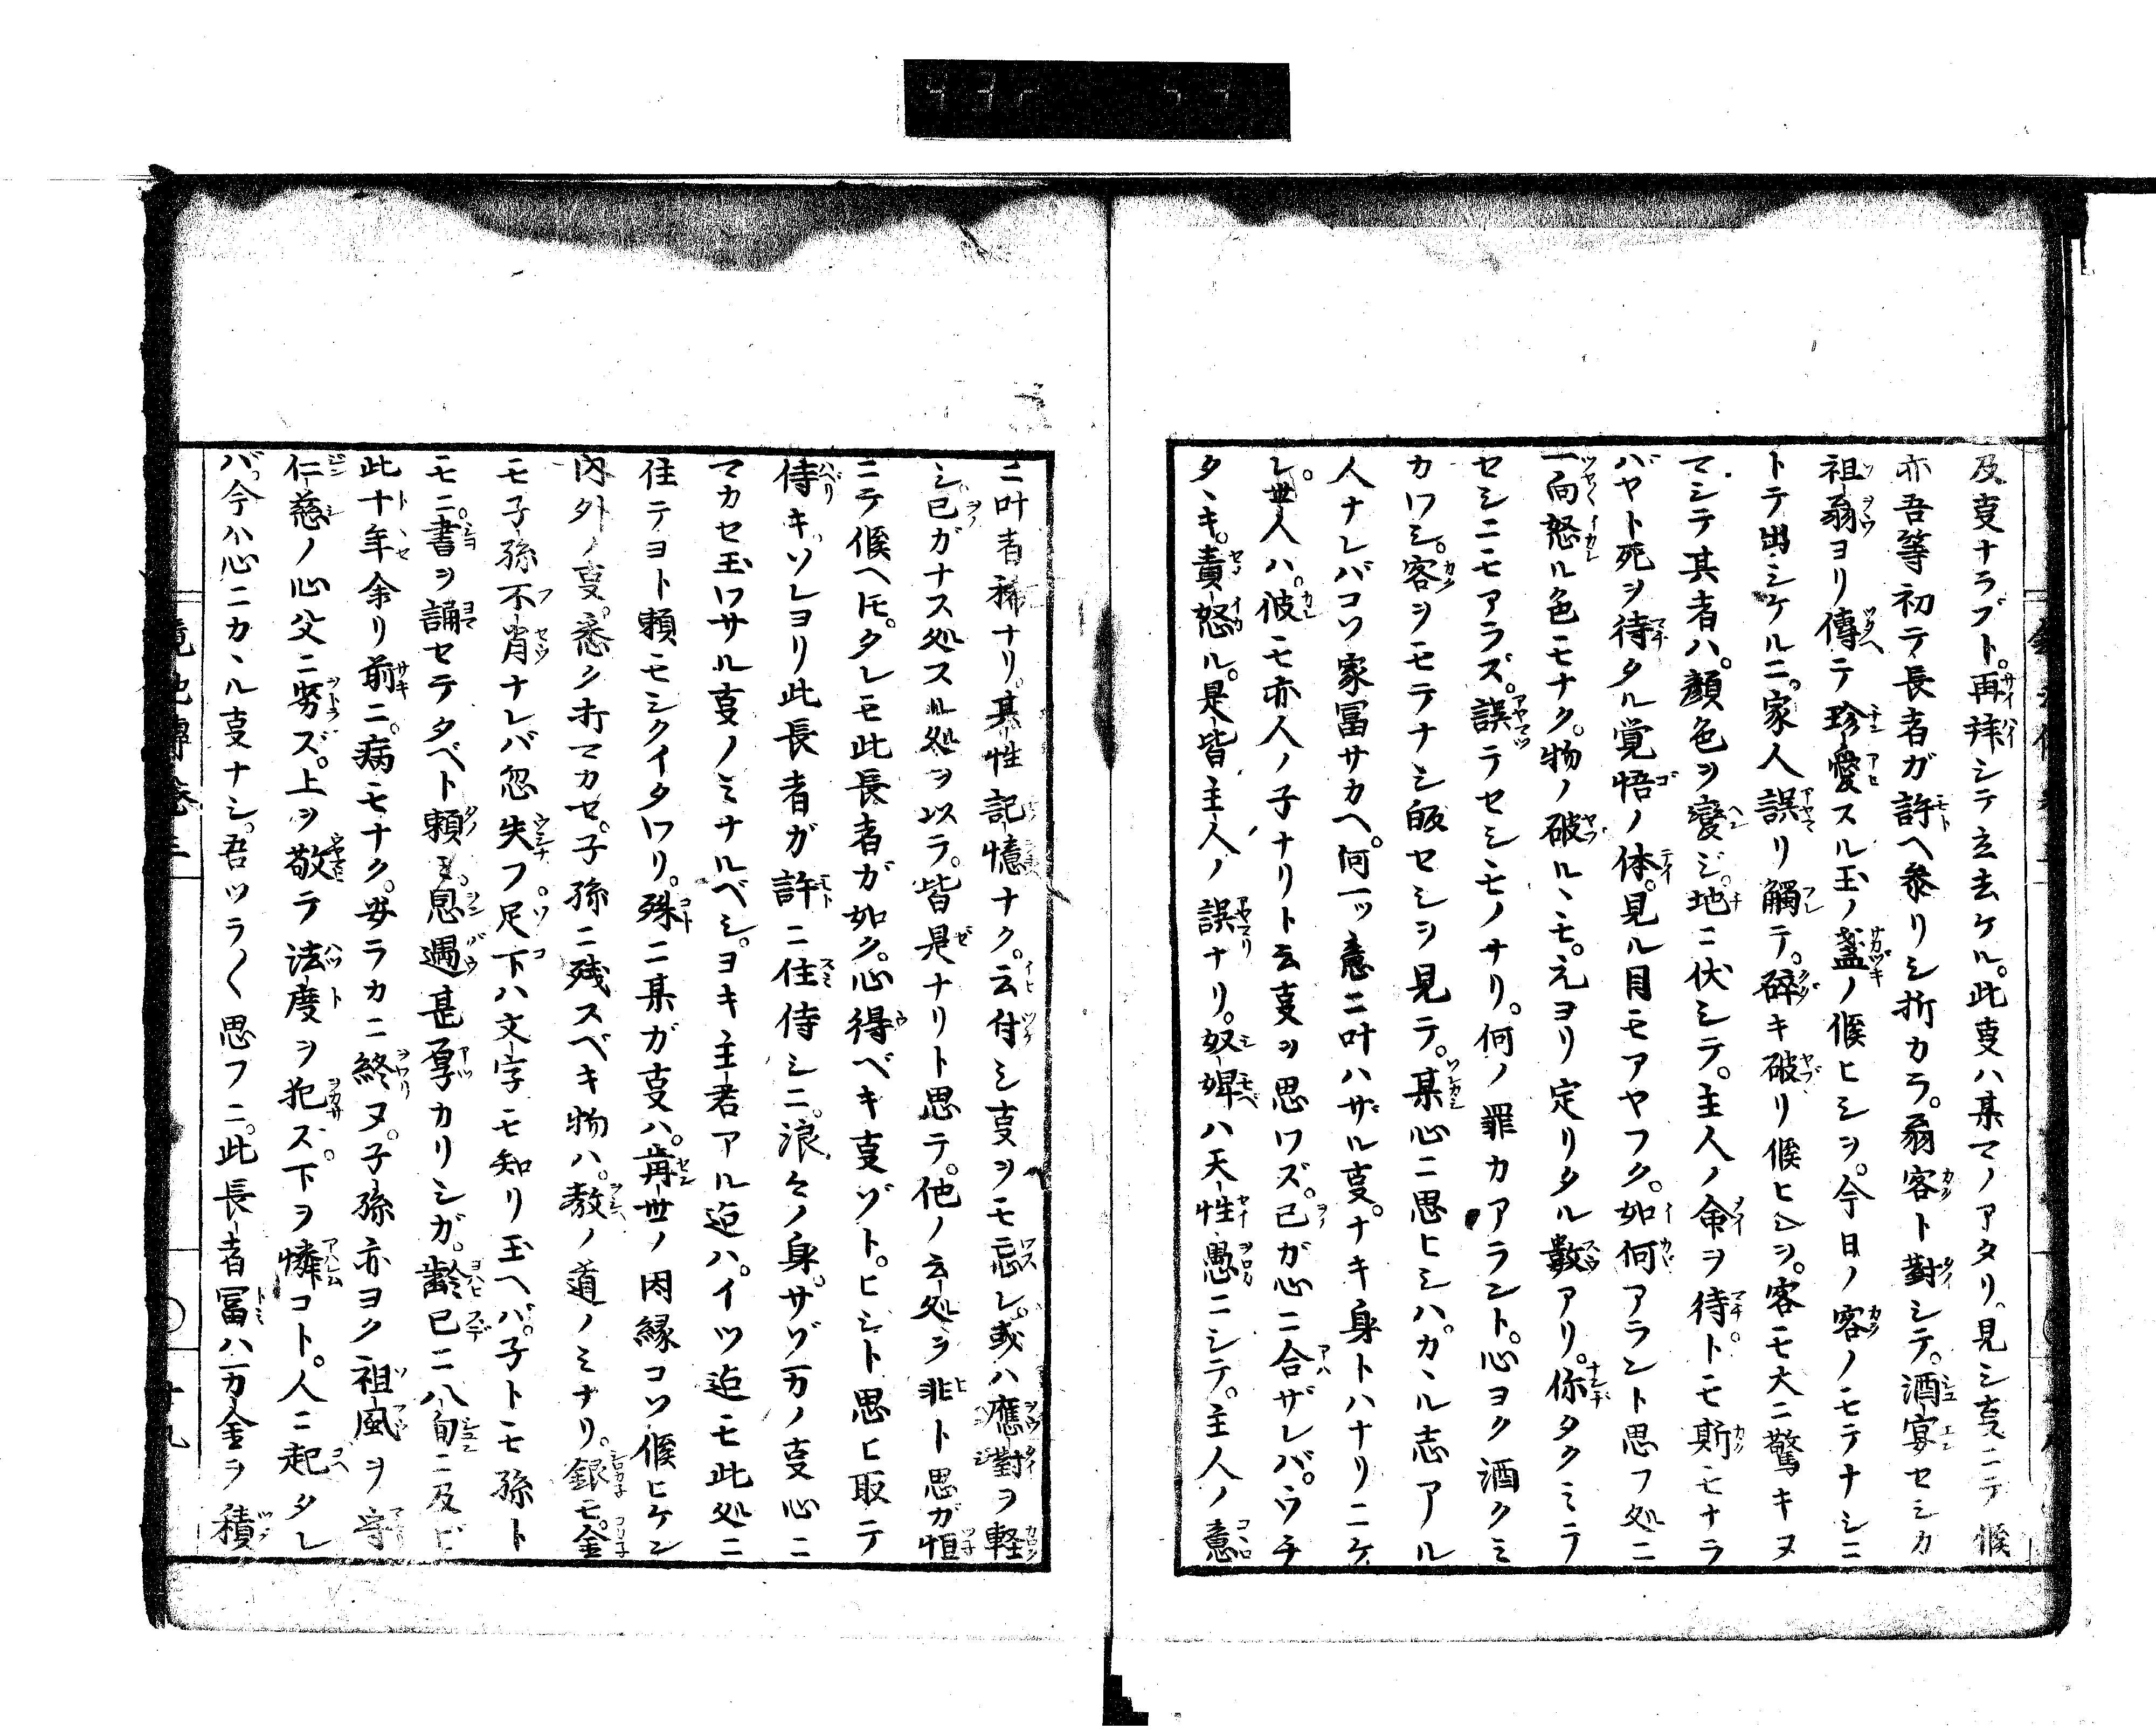 及叓ナラブト。再拜シテ立去ケル。此叓ハ某マノアタリ。見シ叓ニテ候
亦吾等初テ長者ガ許ヘ參リシ折カラ。翁客ト對シテ。酒宴セシカ
祖翁ヨリ傳テ珍愛スル玉ノ盞ノ候ヒシヲ。今日ノ客ノモテナシニ
トテ出シケルニ。家人誤リ觸テ。碎キ破リ候ヒシヲ。客モ大ニ驚キヌ
マシテ其者ハ。顔色ヲ變ジ。地ニ伏シテ。主人ノ命ヲ待。トモ斯モナラ
バヤト死ヲ待タル覚悟ノ体。見ル目モアヤフク。如何アラント思フ処ニ
一向怒ル色モナク。物ノ破ルヽモ。元ヨリ定リタル數アリ。你タクミテ
セシニモアラズ。誤テセシモノナリ。何ノ罪カアラント。心ヨク酒クミ
カワシ。客ヲモテナシ皈セシヲ見テ。某心ニ思ヒシハ。カヽル志アル
人ナレバコソ家冨サカヘ。何一ッ意ニ叶ハザル叓。ナキ身トハナリニケ
レ。世人ハ。彼モ亦人ノ子ナリト云叓ヲ思ワズ。己ガ心ニ合ザレバ。ウチ
タヽキ。責怒ル。是皆主人ノ誤ナリ。奴婢ハ天性愚ニシテ。主人ノ意
ニ叶者稀ナリ。其性記憶ナク。云付シ叓ヲモ忘レ。或ハ應對ヲ軽
シ己ガナス処スル処ヲ以テ。皆是ナリト思テ。他ノ云処ヲ非ト思ガ恒
ニテ候ヘ𪜈。タレモ此長者ガ如ク。心得ベキ叓ゾト。ヒシト思ヒ取テ
侍キ。ソレヨリ此長者ガ許ニ住侍シニ。浪々ノ身。サゾ万ノ叓心ニ
マカセ玉ワサル叓ノミナルベシ。ヨキ主君アル迠ハ。イツ迠モ此処ニ
住テヨト頼モシクイタワリ。殊ニ某ガ叓ハ。前世ノ因縁コソ候ヒケン
内外ノ叓。悉ク打マカセ。子孫ニ残スベキ物ハ。敎ノ道ノミナリ。銀モ。金
モ子孫不肖ナレバ忽失フ。足下ハ文字モ知リ玉ヘバ。子トモ孫ト
モニ。書ヲ誦セテタベト頼ミ。恩遇甚厚カリシガ。齢已ニ八旬ニ及ビ
此十年余リ前ニ。病モナク。安ラカニ終ヌ。子孫亦ヨク祖風ヲ守
仁慈ノ心父ニ劣ズ。上ヲ敬テ法度ヲ犯ズ。下ヲ憐コト。人ニ超タレ
バ今ハ心ニカヽル叓ナシ。吾ツラ〱思フニ。此長者冨ハ万金ヲ積
十九